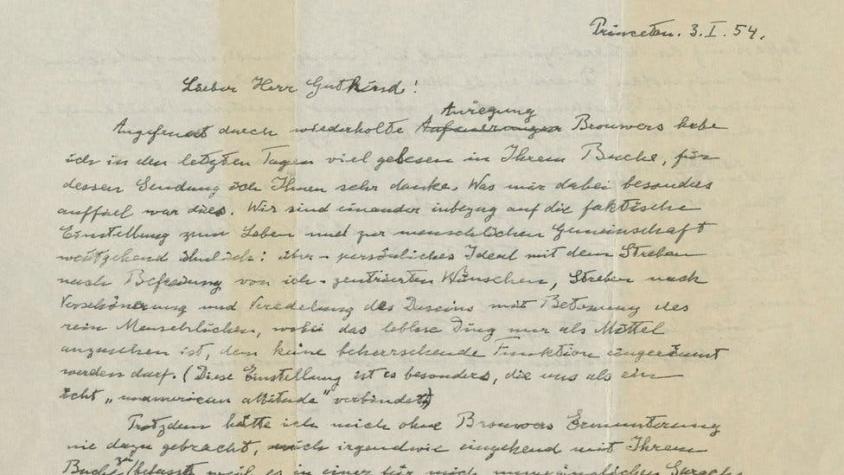 Princeton. 3. I. 54.
Lieber Herr Gutkind!
Anregung
Angefeuert durch wiederholte Aufmunterungen Brouwers habe
ich in den letzten Tagen viel gelesen in Ihrem Buche, für
dessen Sendung ich Ihnen sehr danke. Was mir dabei besonders
auffiel war dies. Wir sind einander inbezug auf die faktische
Einstellung zum Leben und zur menschlichen Gemeinschaft
weitgehend ähnlich: über-persönliches Ideal mit dem Streben
nach Befreiung von ich-zentrierten Wünschen, Streben nach
Verschönerung und Veredelung des Daseins mit Betonung des
rein Menschlichen, wobei das leblose Ding nur als Mittel
anzusehen ist, dem keine beherrschende Funktion eingeräumt
werden darf. (Diese Einstellung ist es besonders, die uns als ein
echt „unamerican attitude" verbindet)
Trotzdem hätte ich mich ohne Brouwers Ermunterung
nie dazu gebracht, mich irgendwie eingehend mit Ihrem
Buche zu befassen weil es in einer für mich unzugänglichen Sprache